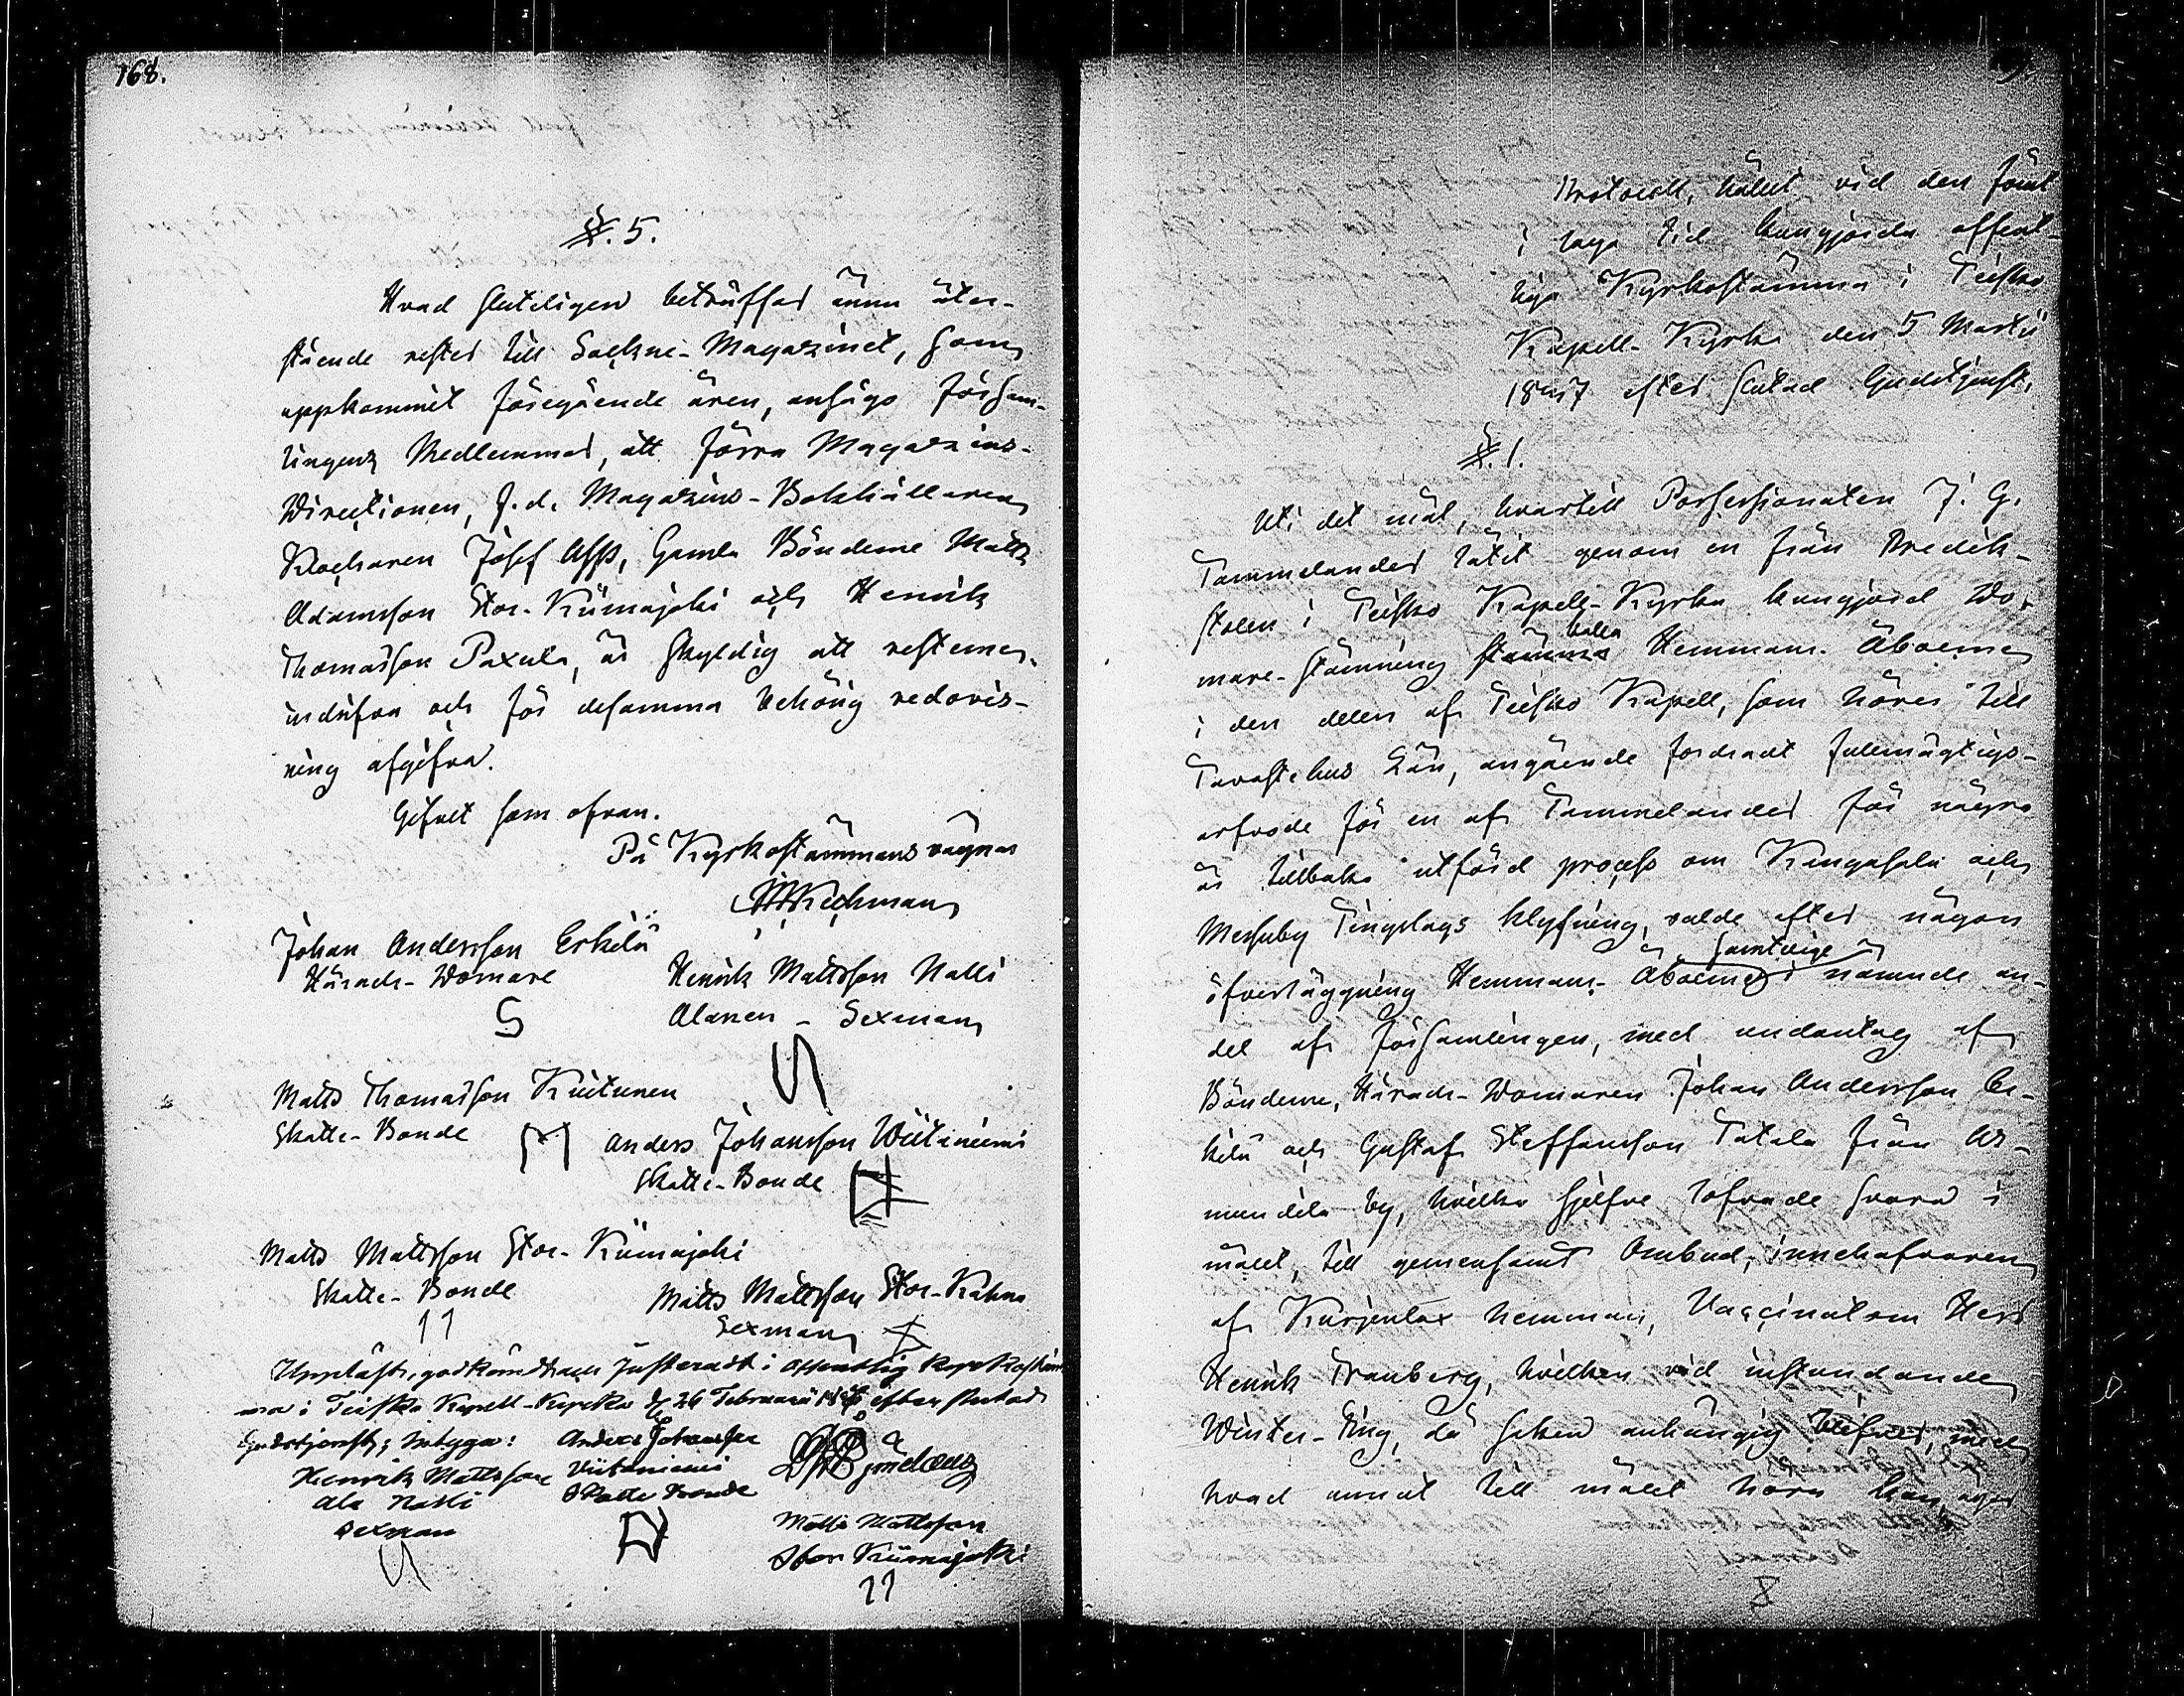 168.
§. 5.
Hvad sluteligen beträffar ännu åter-
stående rester till Sockne-Magazinet, som
uppkommit föregående åren, ansågo Försam-
lingens Medlemmar, att förra Magazins-
Directionen, f. d. Magazins-Bokhållaren
Klockaren Josef Alfss, Gamla Bönderne Matts
Adamsson Stor-Kiimajoki och Henrik
Thomasson Paxula, är skyldig att resterna
indrifva och för desamma behörig redovis-
ning afgifva.
Gifvet som ofvan.
På Kyrkostämmans vägnar
Johan Andersson Erkilä
Härads-Domare
Henrik Mattsson Nalli
Alanen - Sexman
Matts Thomasson Kiitunen
Skatte-Bonde
Anders Johansson Wiitaniemi
Skatte-Bonde
Matts Mattsson Stor-Kiimajoki
Skatte-Bonde
Matts Mattsson Stor-Kahna
Sexman
Uppläst, godkändt och justeradt i offentlig Kyrkostäm-
ma i Teisko Kapell-Kyrka d 26 Februarii efter slutad
Gudstjenst; intyga:
Henrik Mattsson
Ala Nalli
Sexman
Anders Johansson
Viitaniemi
Skatte Bonde
Matts Mattsson
Stor Kiimajoki
Protocoll, hållit vid den förut
i laga tid kungjorda offent-
liga Kyrkostämma i Teisko
Kapell-Kyrka den 5 Martii
1847 efter slutad Gudstjenst.
§. 1.
Uti det mål, hvartill Possessionaten J. G.
Tammelander låtit genom en från Predik-
stolen i Teisko Kapell-Kyrka kungjord Do-
mare-stämning kalla Hemmans-Åboerne
i den delen af Teisko Kapell, som hörer till
Tavastehus Län, angående fordradt fullmägtigs-
arfvode för en af Tammelander för några
år tillbaka utförd process om Kangasala och
Messuby Tingslags klyfning, valde efter någon
öfverläggning samtelige Hemmans-Åboerne i nämnde an-
del af Församlingen, med undantag af
Bönderne, Härads-Domaren Johan Andersson Er-
kilä och Gustaf Steffansson Tatala från As-
mundila by, hvilka sjelfve lofvade svara i
målet, till gemensamt Ombud, innehafvaren
af Kurjenlax hemman, Vaccinatorn Herr
Henrik Tranberg, hvilken vid instundande
Winter-Ting, då saken anhängig blifver, med
hvad annat till målet höra kan, äger